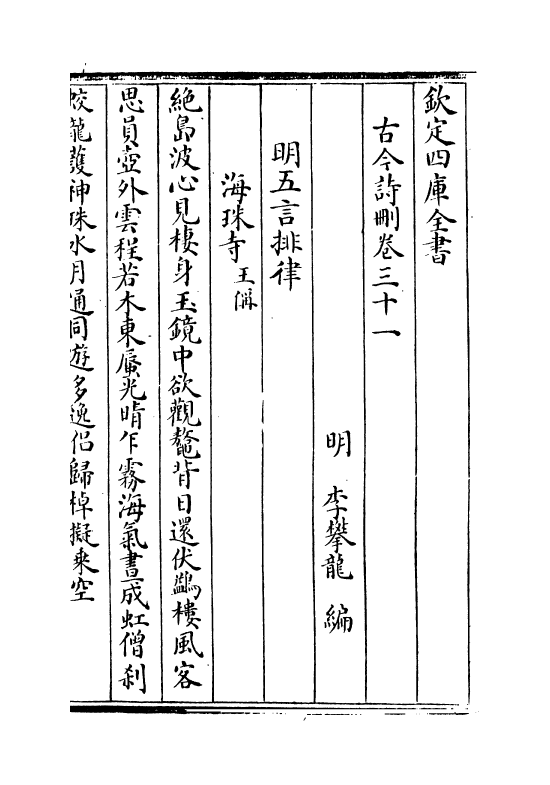 欽定四庫全書
古今詩刪卷三十一
明 李攀龍 編
明五言排律
海珠寺 王偁
絕島波心見棲身玉鏡中欲觀鼇背日還伏鷁樓風客
思員壺外雲程若木東蜃光晴乍霧海氣晝成虹僧刹
蛟龍護神珠水月通同遊多逸侶歸棹擬乗空